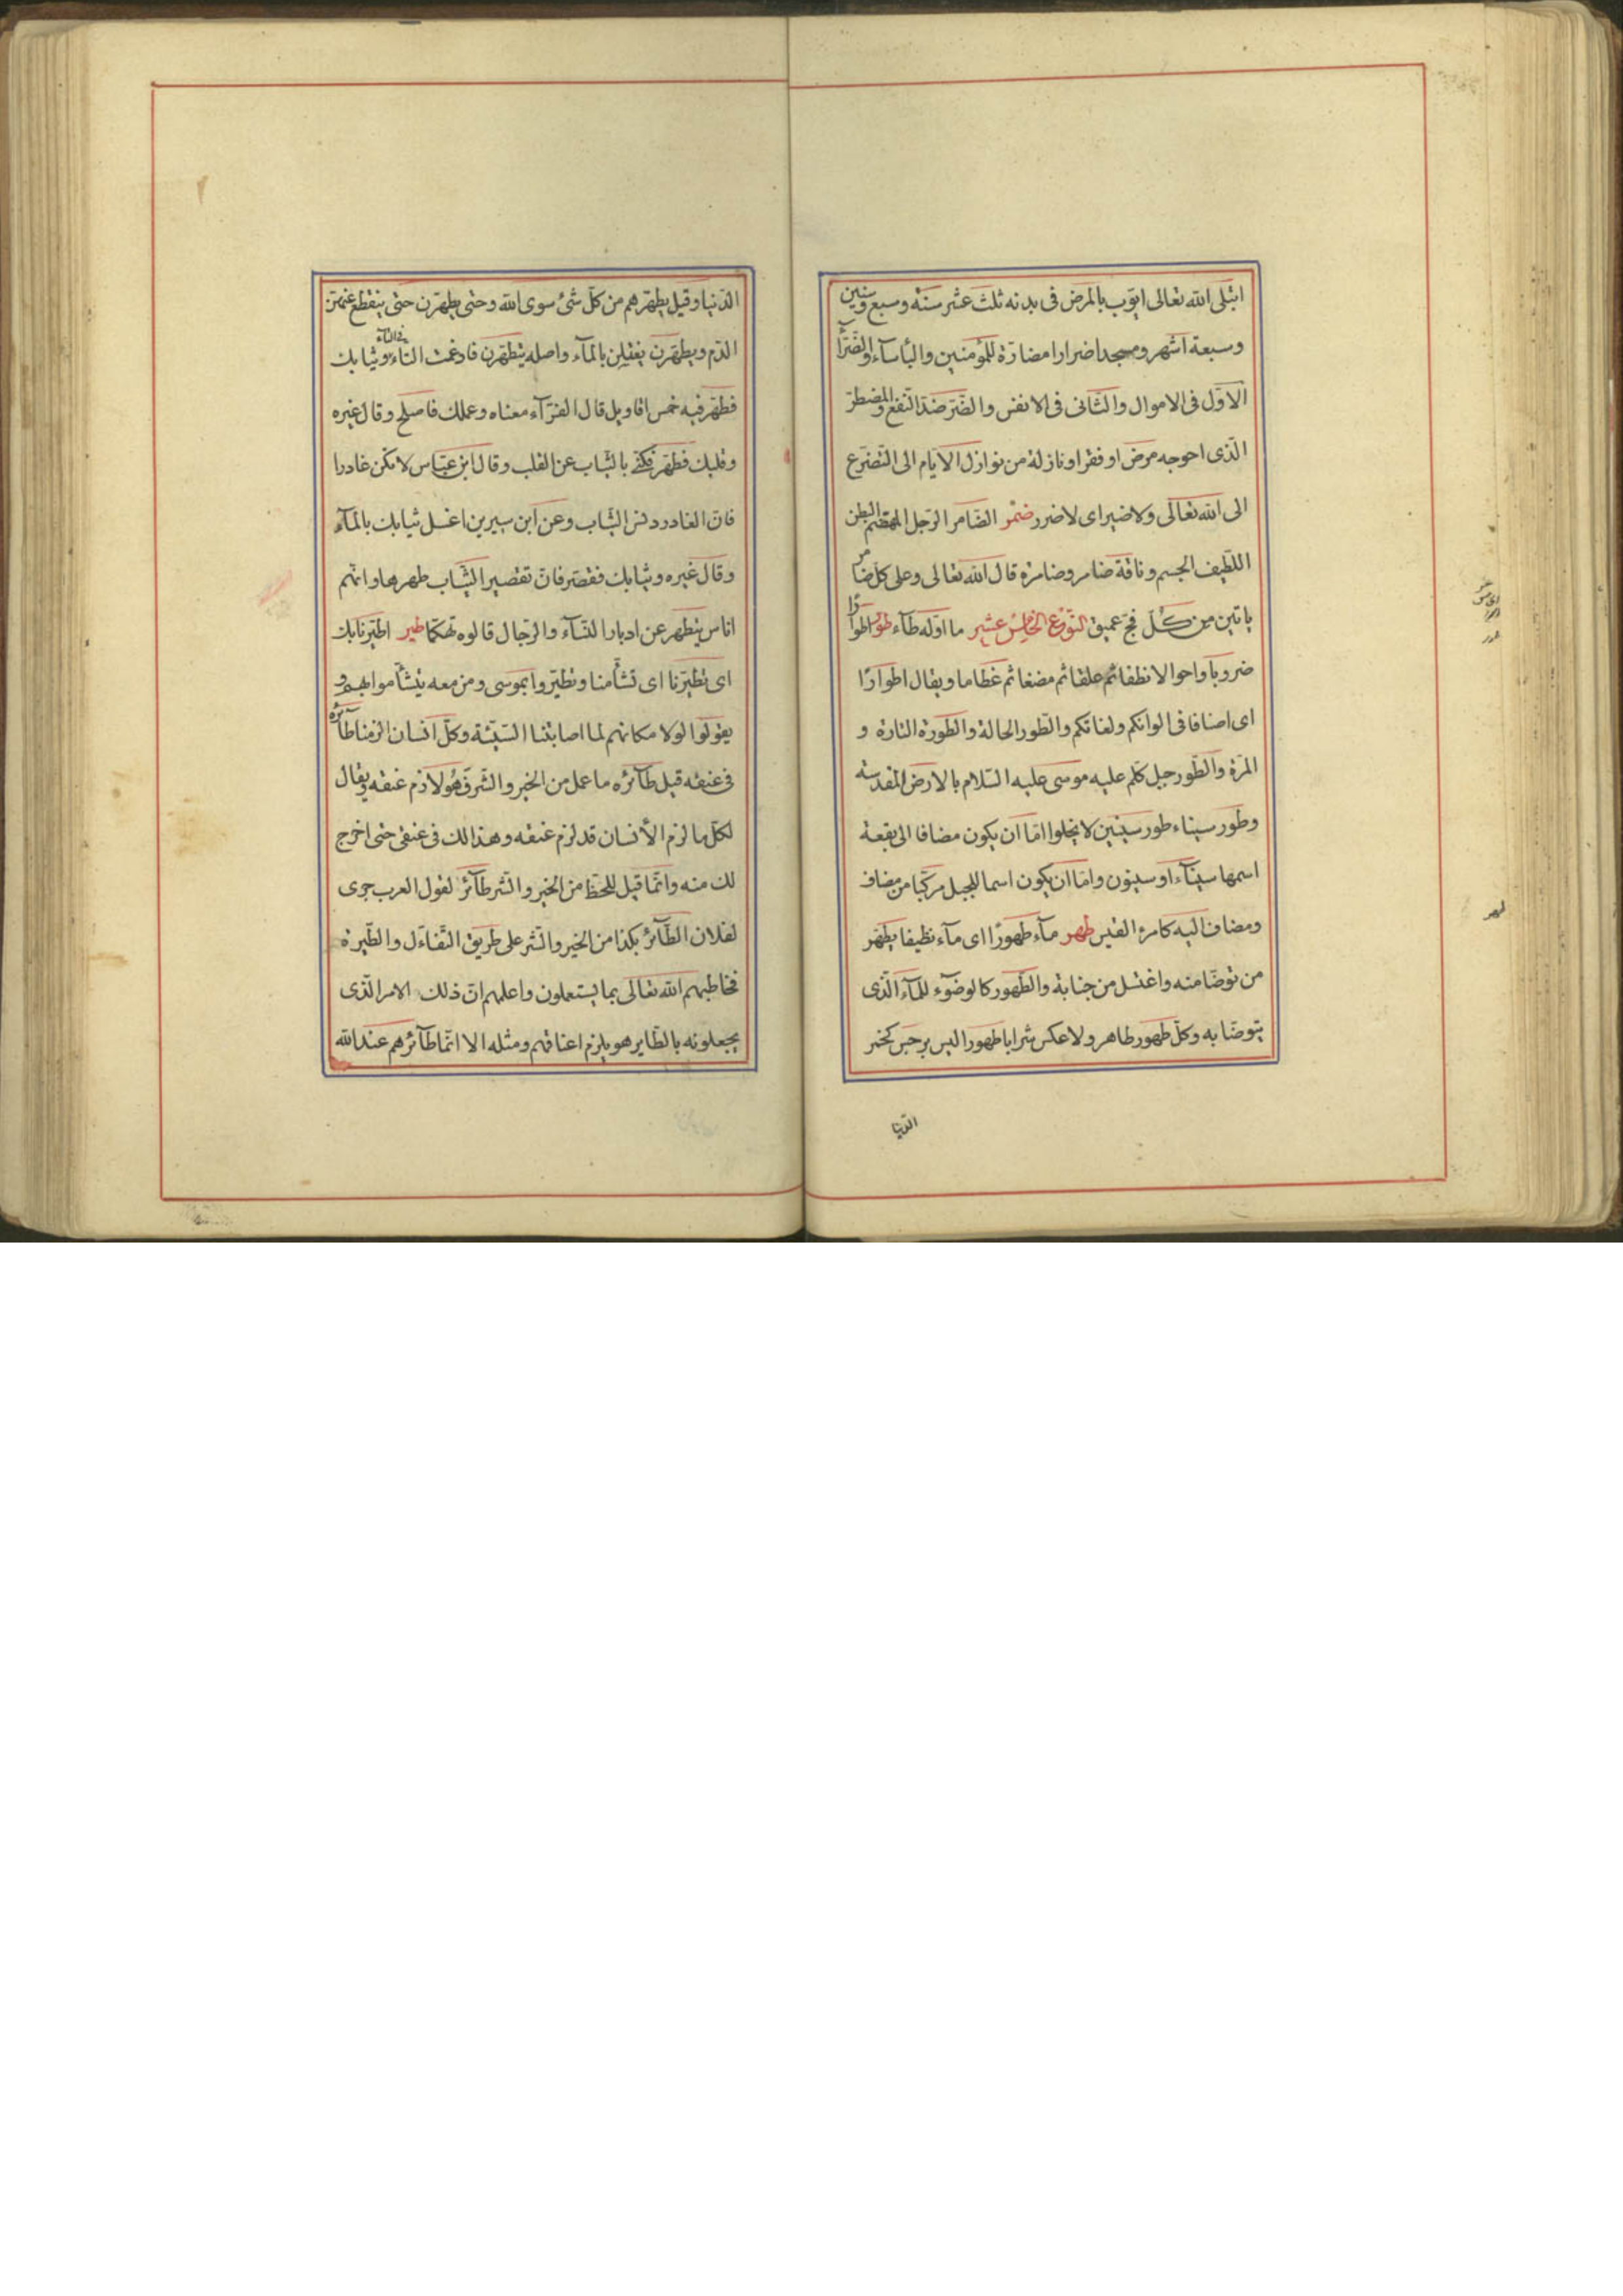 ابتلى الله تعالى ايّوب بالمرض فى بدنه ثلث عشر سنة وسبع سنين
وسبعة اشهر ومسجدا ضرارا مضارّة للمؤمنين والبأسآء والضّرّآء
الاوّل فى الاموال والثّانى فى الانفس والضّرّ ضدّ النّفع والمضطرّ
الّذى احوجه مرض او فقر او نازلة من نوازل الايّام الى التّضرّع
الى الله تعالى ولا ضير اى لا ضرر ضمر الضّامر الرّجل المهضّم البطن
اللّطيف الجسم وناقة ضامر وضامرة قال الله تعالى وعلى كلّ ضامر
ياتين من كلّ فجّ عميق النّوع الخامس عشر ما اوّله طآء طور اطوارًا
ضروبا واحوالا نطفا ثم علقا ثم مضغا ثم عظاما ويقال اطوارًا
اى اصنافا فى الوانكم ولغاتكم والطّور الحالة والطّورة التّارة و
المرّة والطّور جبل كلّم عليه موسى عليه السّلام بالارض المقدسة
وطور سيناء طور سينين لا يخلوا امّا ان يكون مضافا الى بقعة
اسمها سينآء او سينون وامّا ان يكون اسما للجبل مركّبا من مضاف
ومضاف اليه كامرء القيس طهر مآء طهورًا اى مآء نظيفا يطهّر
من توضّا منه واغتسل من جنابة والطّهور كالوضوء للمآء الّذى
يتوضّا به وكلّ طهور طاهر ولا عكس شرابا طهورا ليس برجس كخمر
الدّنيا
طهر
الدّنيا وقيل يطهّرهم من كلّ شئ سوى الله وحتى يطهرن حتى ينقطع عنهنّ
الدّم ويطهّرن يغتسلن بالمآء واصله يتطهّرن فادغمت التاء فى الطآء وثيابك
فطهّر فيه خمس اقاويل قال الفرّآء معناه وعملك فاصلح وقال غيره
وقلبك فطهّر فكنى بالثّياب عن القلب وقال ابن عبّاس لا تكن غادرا
فانّ الغادر دنس الثّياب وعن ابن سيرين اغسل ثيابك بالمآء
وقال غيره وثيابك فقصّر فانّ تقصير الثّياب طهرها وانّهم
اناس يتطهّر عن ادبار النّسآء والرّجال قالوه تهكّما طير اطّيّرنا بك
اى تطيّرنا اى تشأّمنا وتطيّروا بموسى ومن معه يتشأّموا بهم و
يقولوا لولا مكانهم لما اصابتنا السّيّئة وكلّ انسان الزمناه طآئره
فى عنقه قيل طآئره ما عمل من الخير والشّر فهُو لازم عنقه ويقال
لكلّ ما لزم الأنسان قد لزم عنقه وهذا لك فى عنقى حتى اخرج
لك منه وانّما قيل للحظّ من الخير والشّر طآئر لقول العرب جرى
لفلان الطّآئر بكذا من الخير والشّر على طريق التّفاءل والطّيرة
فخاطبهم الله تعالى بما يستعملون واعلمهم انّ ذلك الامر الّذى
يجعلونه بالطّاير هو يلزم اعناقهم ومثله الا انّما طآئرهم عند الله